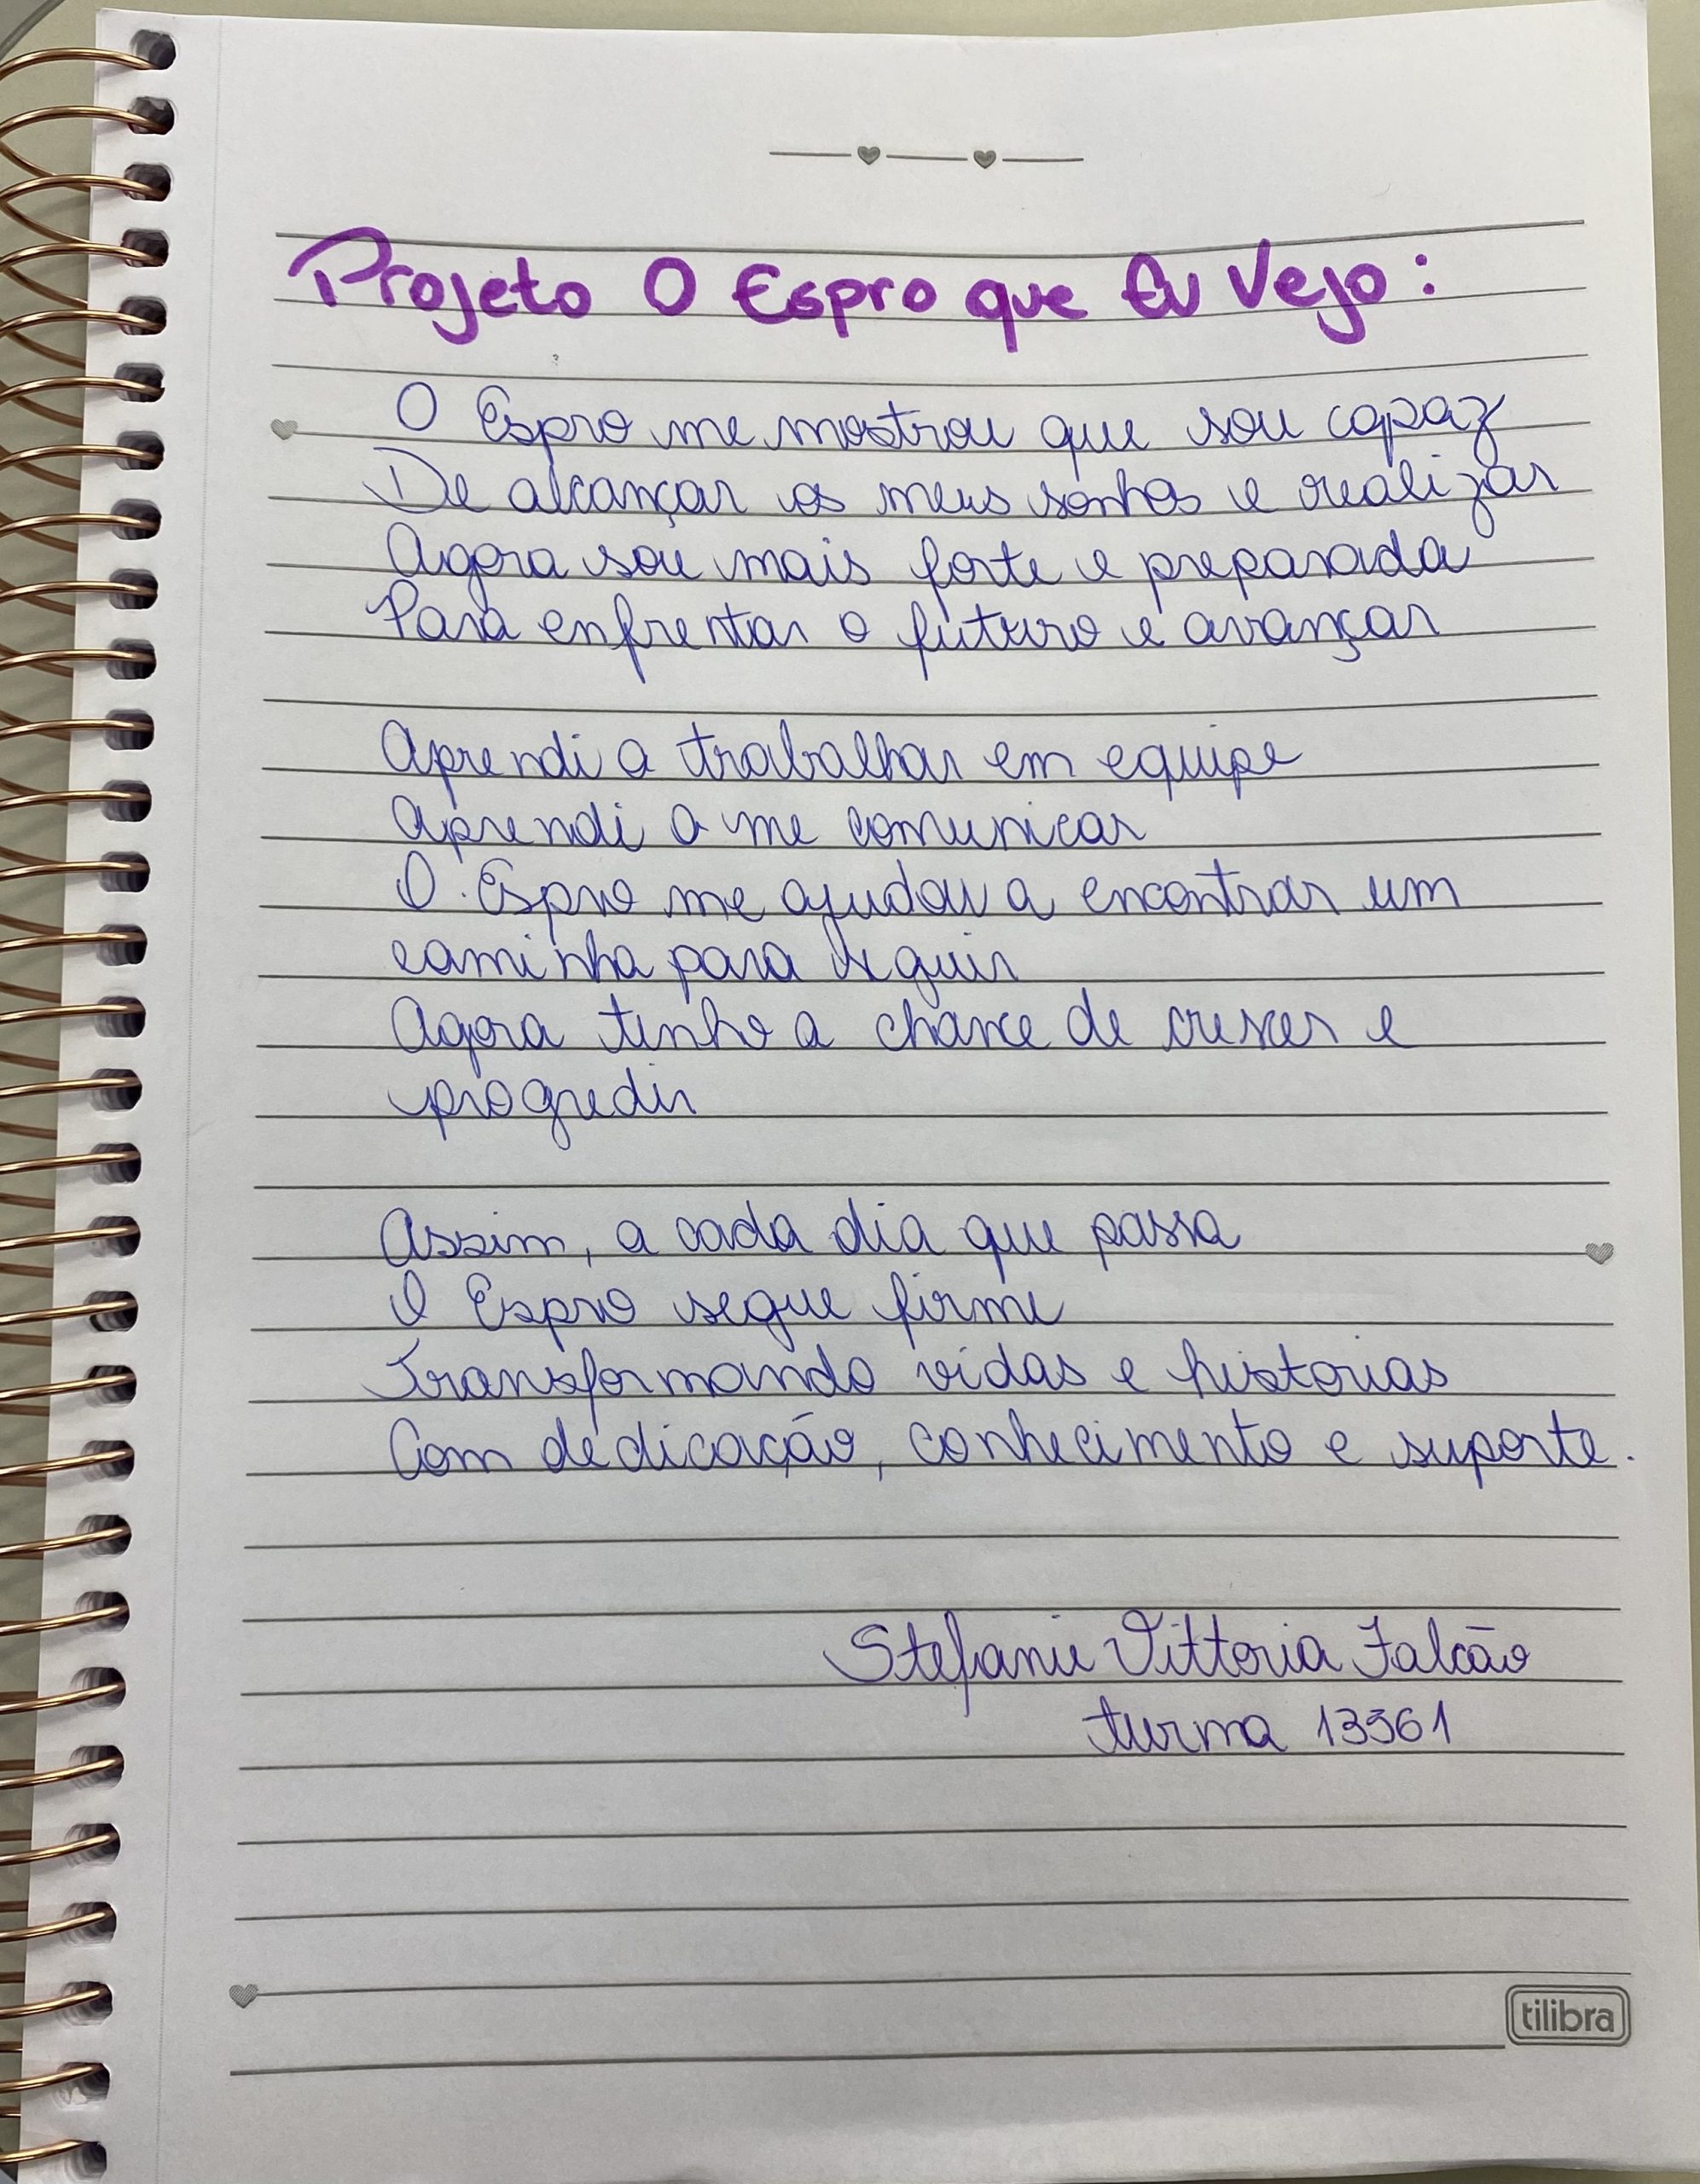 Projeto O Espro que Eu Vejo:
O Espro me mostrou que sou capaz
De alcançar os meus sonhos e realizar
Agora sou mais forte e preparada
Para enfrentar o futuro e avançar
Aprendi a trabalhar em equipe
Aprendi a me comunicar
O Espro me ajudou a encontrar um
caminho para seguir
Agora tenho a chance de crescer e
progredir
Assim, a cada dia que passa
O Espro segue firme
Transformando vidas e historias
Com dedicação, conhecimento e suporte.
Stefanie Vittoria Falcão
turma 13561
tilibra